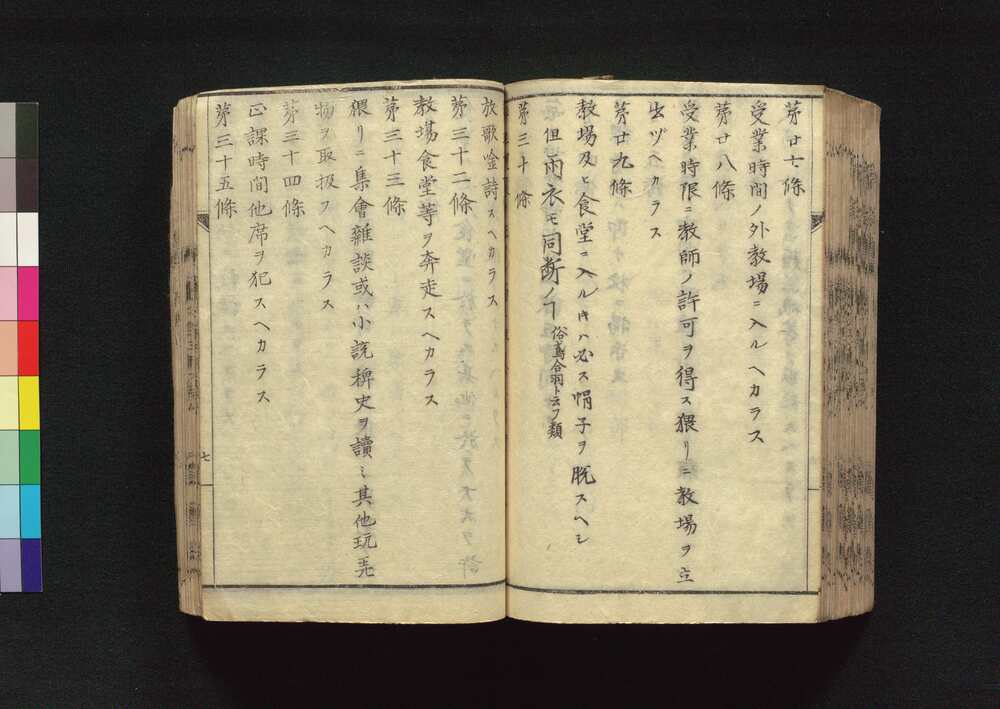 第廿七條
受業時間ノ外教場ニ入ルヘカラス
第廿八條
受業時限ニ教師ノ許可ヲ得ス猥リニ教場ヲ立
出ヅヘカラス
第廿九條
教場及ヒ食堂ニ入ル片ハ必ス帽子ヲ脱スヘシ
但雨衣モ同断ノヿ俗鳶合羽ト云フ類
第三十條
放歌唫詩スヘカラス
第三十二條
教場食堂等ヲ奔走スヘカラス
第三十三條
猥リニ集會雜談或ハ小説稗史ヲ讀ミ其他玩弄
物ヲ取扱フヘカラス
第三十四條
正課時間他席ヲ犯スヘカラス
第三十五條
七